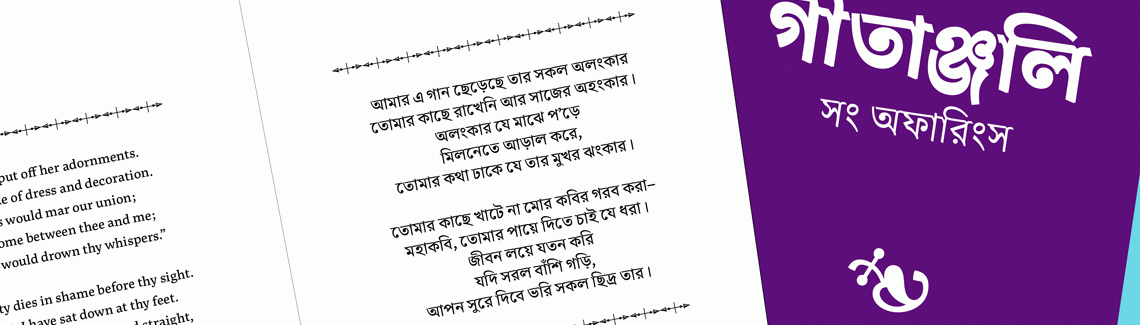 put off her adornments.
e of dress and decoration.
would mar our union;
ome between thee and me;
would drown thy whispers.”
ty dies in shame before thy sight.
I have sat down at thy feet.
straight,
আমার এ গান ছেড়েছে তার সকল অলংকার
তোমার কাছে রাখেনি আর সাজের অহংকার।
অলংকার যে মাঝে প’ড়ে
মিলনেতে আড়াল করে,
তোমার কথা ঢাকে যে তার মুখর ঝংকার।
তোমার কাছে খাটে না মোর কবির গরব করা–
মহাকবি, তোমার পায়ে দিতে চাই যে ধরা।
জীবন লয়ে যতন করি
যদি সরল বাঁশি গড়ি,
আপন সুরে দিবে ভরি সকল ছিদ্র তার।
গীতাঞ্জলি
সং অফারিংস